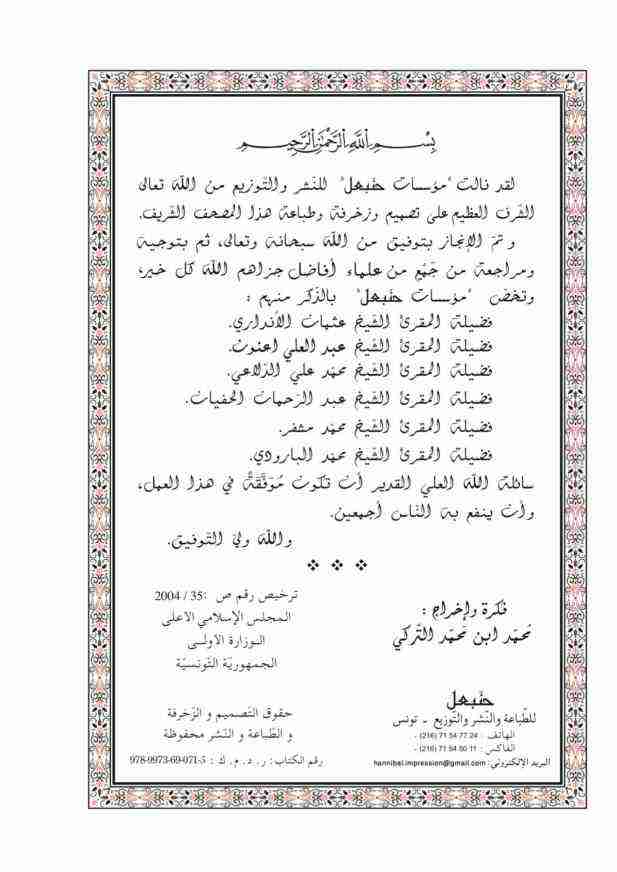 بِسْمِ اللَّهِ الرَّحْمَٰنِ الرَّحِيمِ
لقد نالت "مؤسسات حنبعل" للنشر والتّوزيع من اللّه تعالى
الشّرف العظيم على تصميم وزخرفة وطباعة هذا المصحف الشّريف.
و تمّ الإنجاز بتوفيق من اللّه سبحانه وتعالى، ثم بتوجيه
ومراجعة من جَمْعٍ من علماء أفاضل جزاهم اللّه كل خير،
وتخصّ "مؤسسات حنبعل" بالذّكر منهم :
فضيلة المقرئ الشّيخ عثمان الأنداري.
فضيلة المقرئ الشّيخ عبد العلي اعنون.
فضيلة المقرئ الشّيخ محمّد علي الدّلاعي.
فضيلة المقرئ الشّيخ عبد الرّحمان الحفيان.
فضيلة المقرئ الشّيخ محمّد مشفر.
فضيلة المقرئ الشّيخ محمّد البارودي.
سائلة اللّه العلي القدير أن تكون مُوَفَّقَةً في هذا العمل،
وأن ينفع به النّاس أجمعين.
واللّه وليّ التّوفيق.
فكرة وإخراج :
محمّد ابن محمّد التّركي
ترخيص رقم ص :35 / 2004
المجلس الإسلامي الأعلى
الوزارة الأولى
الجمهوريّة التّونسيّة
حنبعل
للطّباعة والنّشر والتّوزيع - تونس
الهاتف : 24 77 54 71 (216) -
الفاكس : 11 50 54 71 (216) -
البريد الإلكتروني : hannibal.impression@gmail.com
حقوق التّصميم و الزّخرفة
و الطّباعة و النّشر محفوظة
رقم الكتاب : ر . د . م . ك : 978-9973-69-071-5